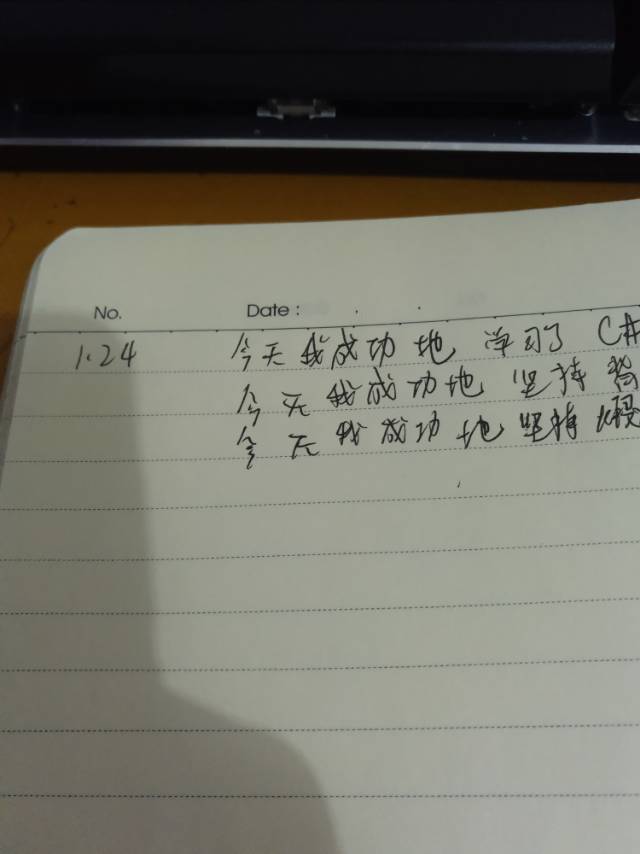 No. Date :
1.24 今天我成功地 学习了 C#
今天我成功地 坚持
今天我成功地坚持